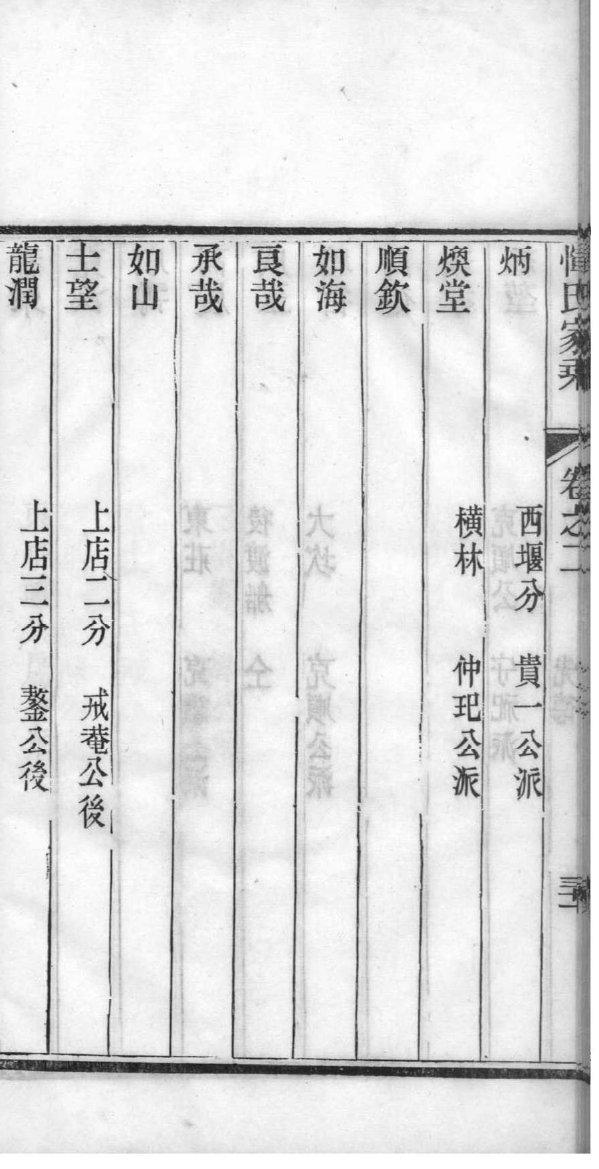 惲氏家乘
卷之二
炳 西堰分 貴一公派
煥堂 橫林 仲玘公派
順欽
如海
良哉
承哉
如山
士望 上店二分 戒菴公後
龍潤 上店三分 鏊公後